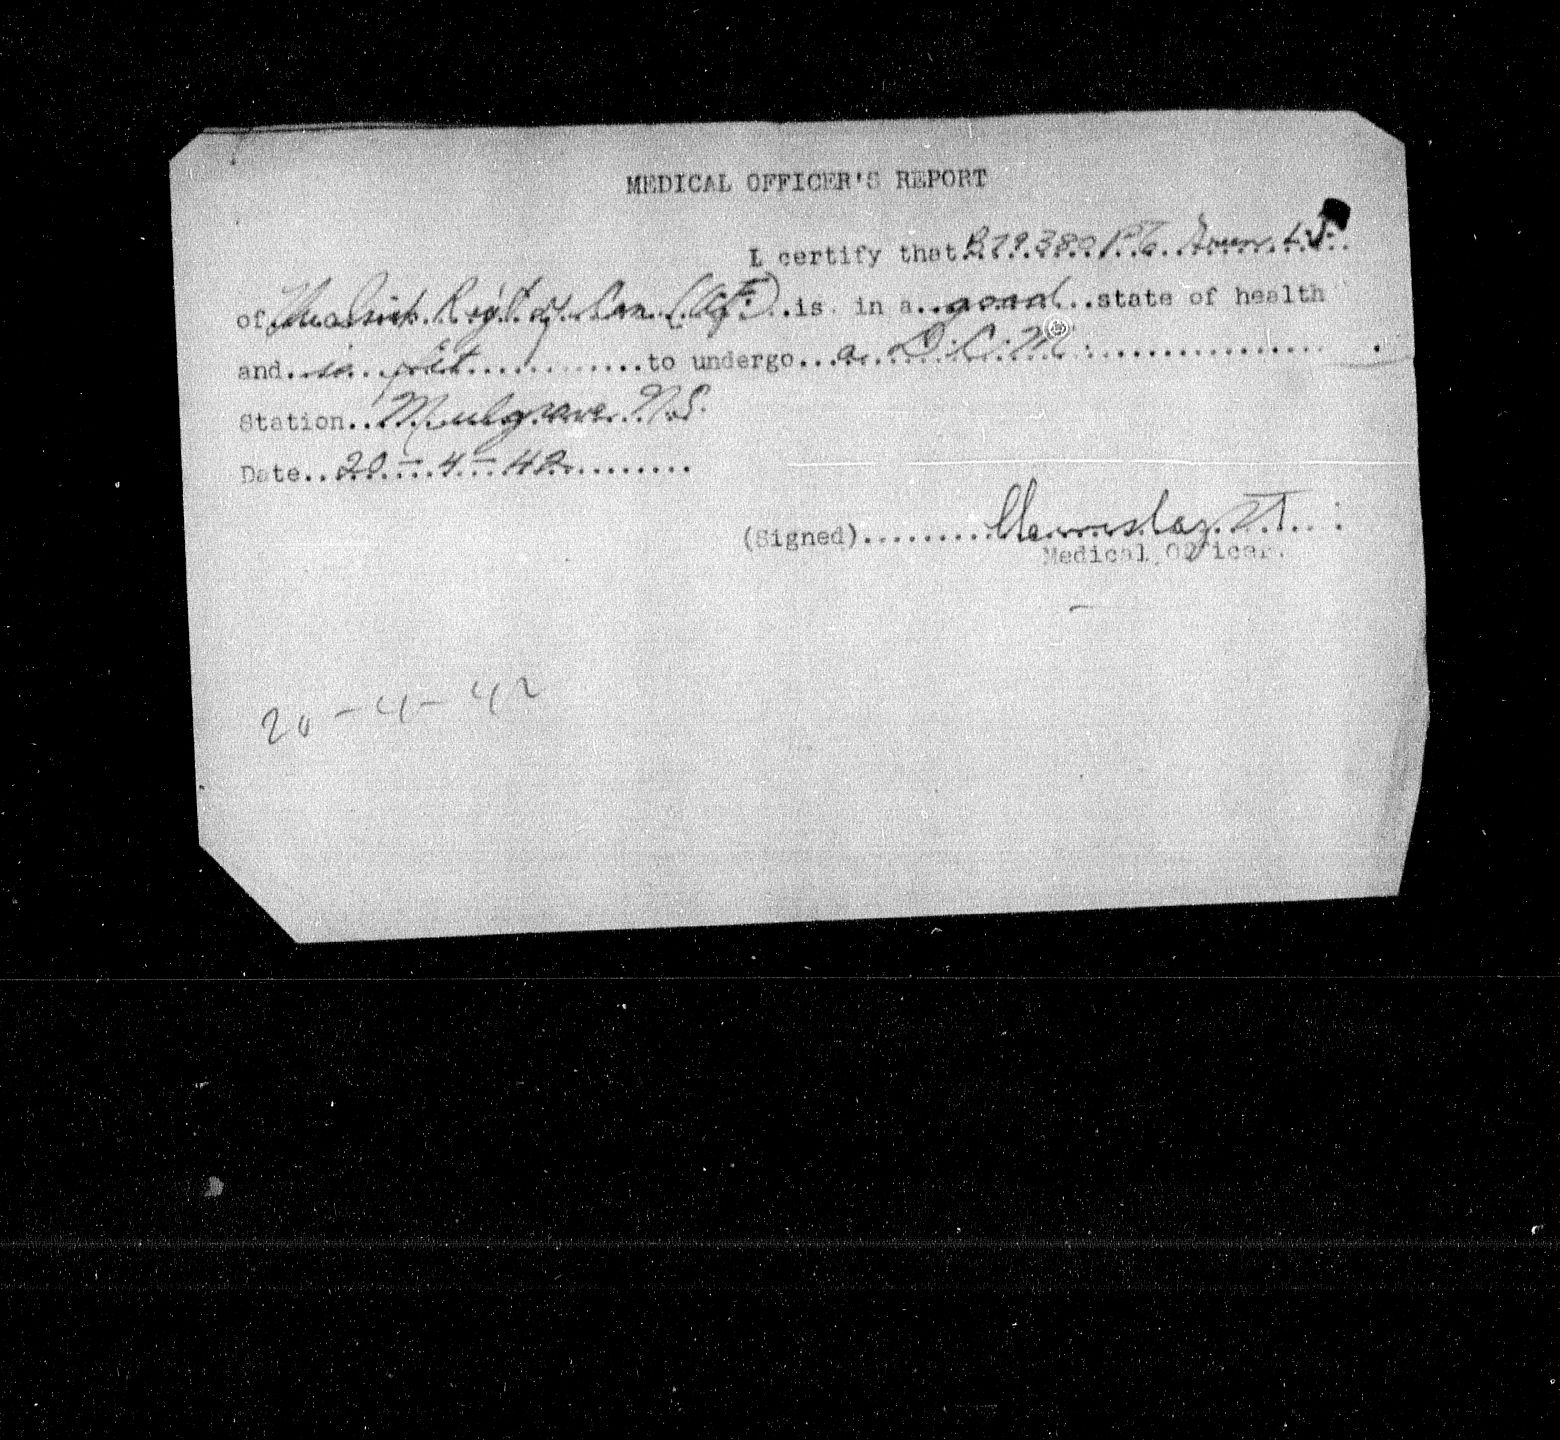 MEDICAL OFFICER'S REPORT
I certify that B.79.380 Pte. L.J.
of The Irish Reg't of Can. (AF.) is in a..good..state of health
and..is fit............to undergo...a..D.C.M.................
Station..Mulgrave N.S.
Date..20.-.4.-.42.........
(Signed).........
Medical Officer.
20-4-42